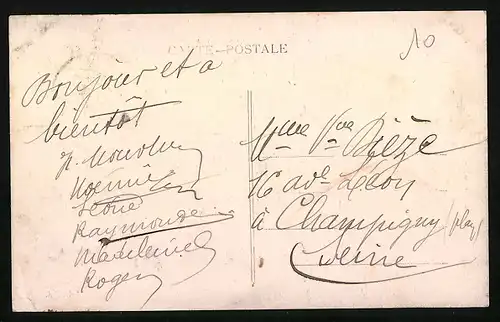 CARTE-POSTALE
10
Bonjour et a
bientôt
Noémie
Léonie
Raymonde
Madeleine
Roger
Mme Vve Dièze
16 ave Léon
à Champigny (plag)
Seine